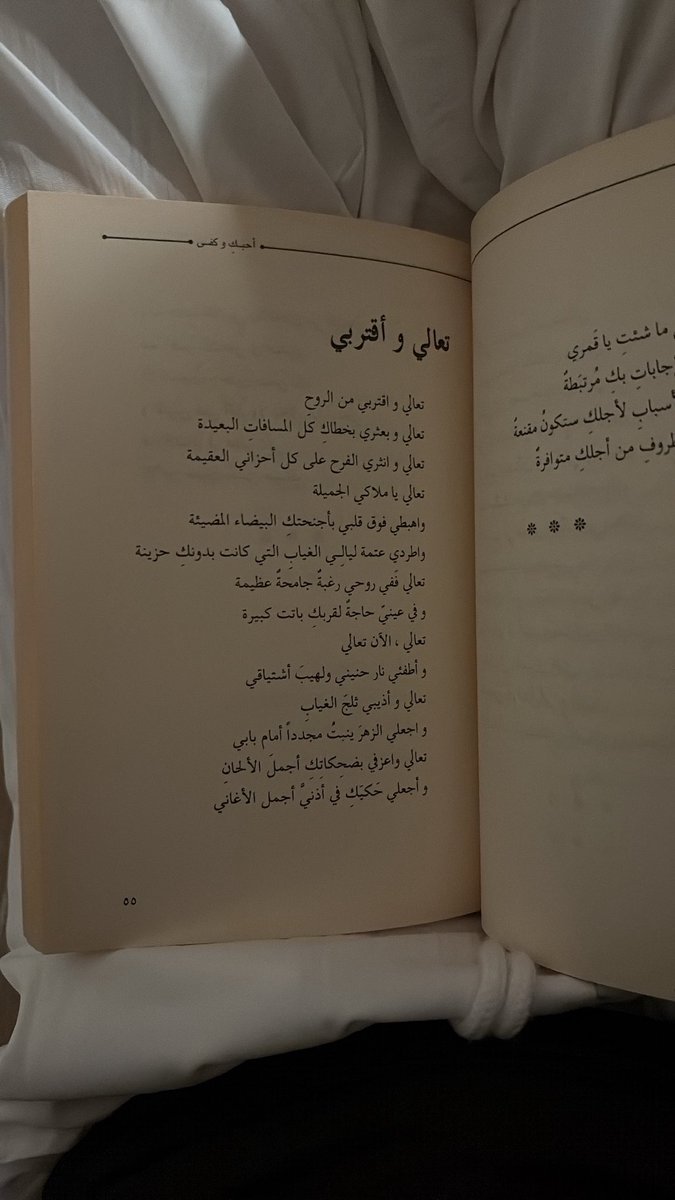 ما شئتِ يا قَمري
بكِ مُرتبَطةٌ
لأجلكِ ستكونُ مقنعةُ
من أجلكِ متوافرةٌ
أحبكِ و كفى
تعالي و أقتربي
تعالي و اقتربي من الروحِ
تعالي و بعثري بخطاكِ كل المسافاتِ البعيدة
تعالي و انثري الفرح على كل أحزاني العقيمة
تعالي يا ملاكي الجميلة
واهبطي فوق قلبي بأجنحتكِ البيضاء المضيئة
واطردي عتمة ليالي الغيابِ التي كانت بدونكِ حزينة
تعالي فَفي روحي رغبةٌ جامحةٌ عظيمة
و في عينيّ حاجةٌ لقربكِ باتت كبيرة
تعالي ، الأن تعالي
و أطفئي نار حنيني ولهيبَ أشتياقي
تعالي و أذيبي ثلجَ الغيابِ
و اجعلي الزهرَ ينبتُ مجدداً أمام بابي
تعالي واعزفي بضحِكاتِكِ أجملَ الألحانِ
و أجعلي حَكيَكِ في أذنيَّ أجمل الأغاني
٥٥